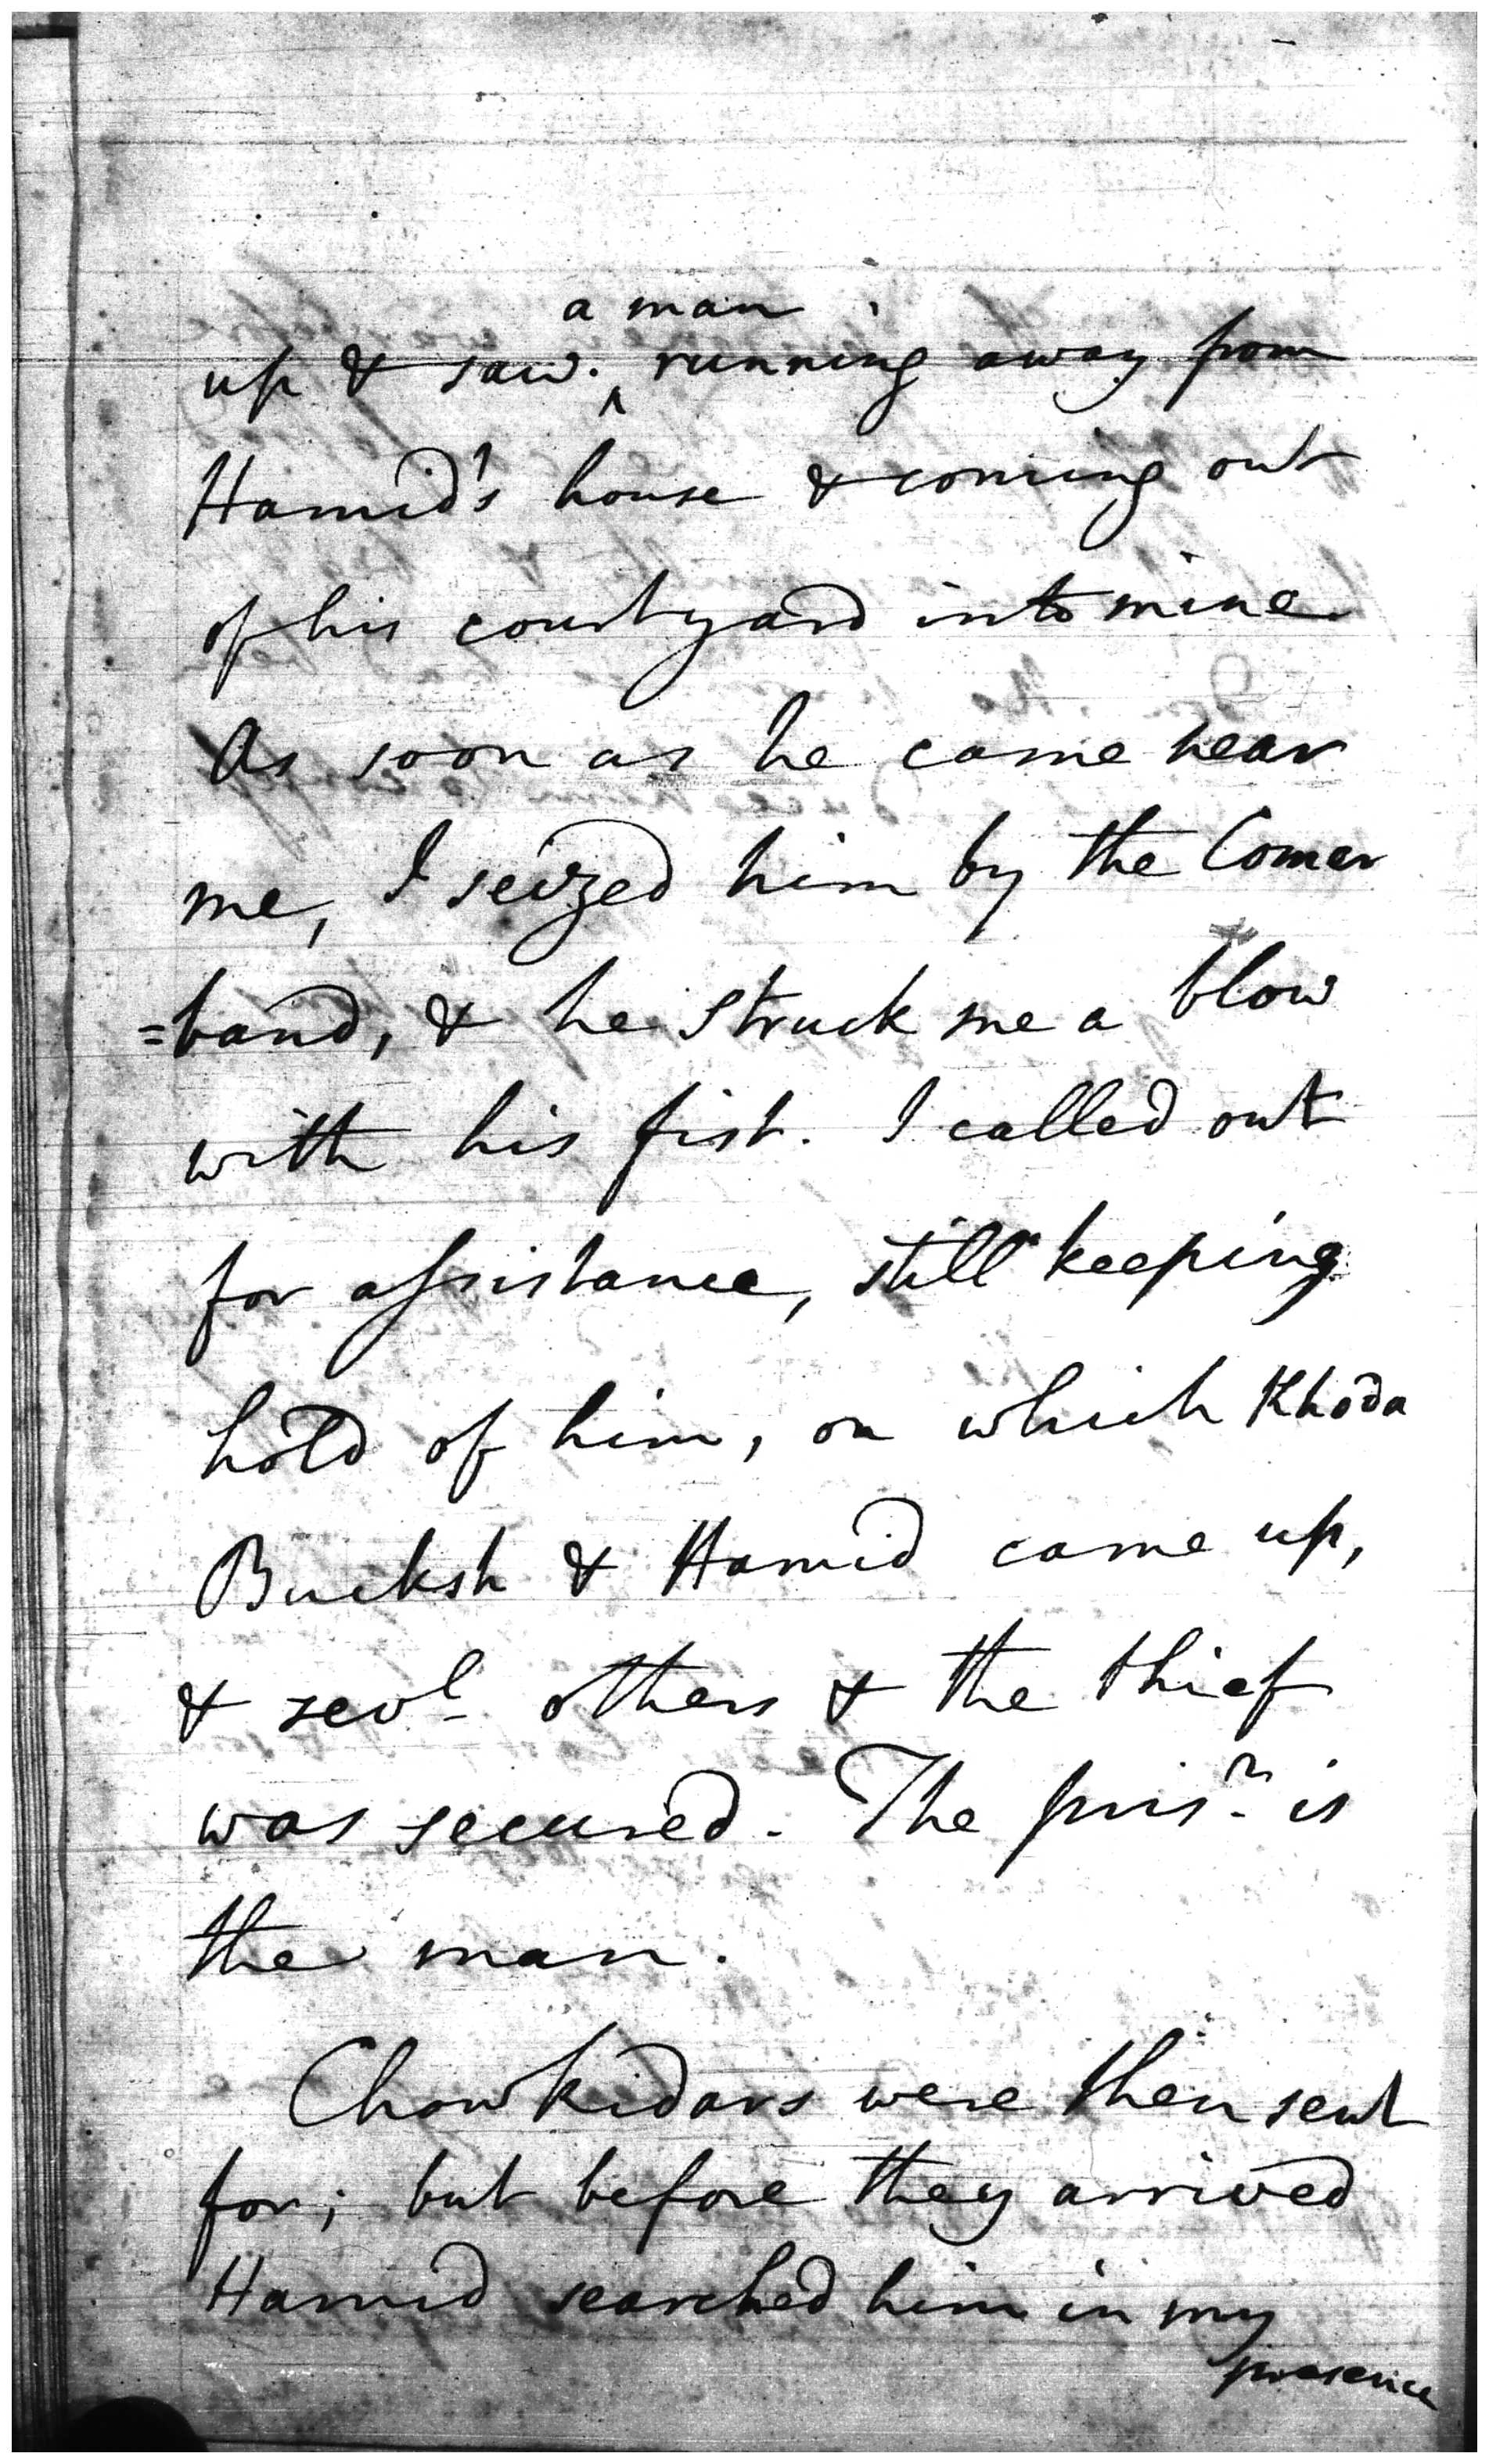 a man
up & saw. ^ running away from
Hamid's house & coming out
of his courtyard into mine
As soon as he came near
me, I seized him by the Comer
=band, & he struck me a blow
with his fist. I called out
for assistance, still keeping
hold of him, on which Khoda
Bucksh & Hamid came up,
& sevl others & the thief
was secured. The prisr is
the man.
Chowkidars were then sent
for; but before they arrived
Hamid searched him in my
presence